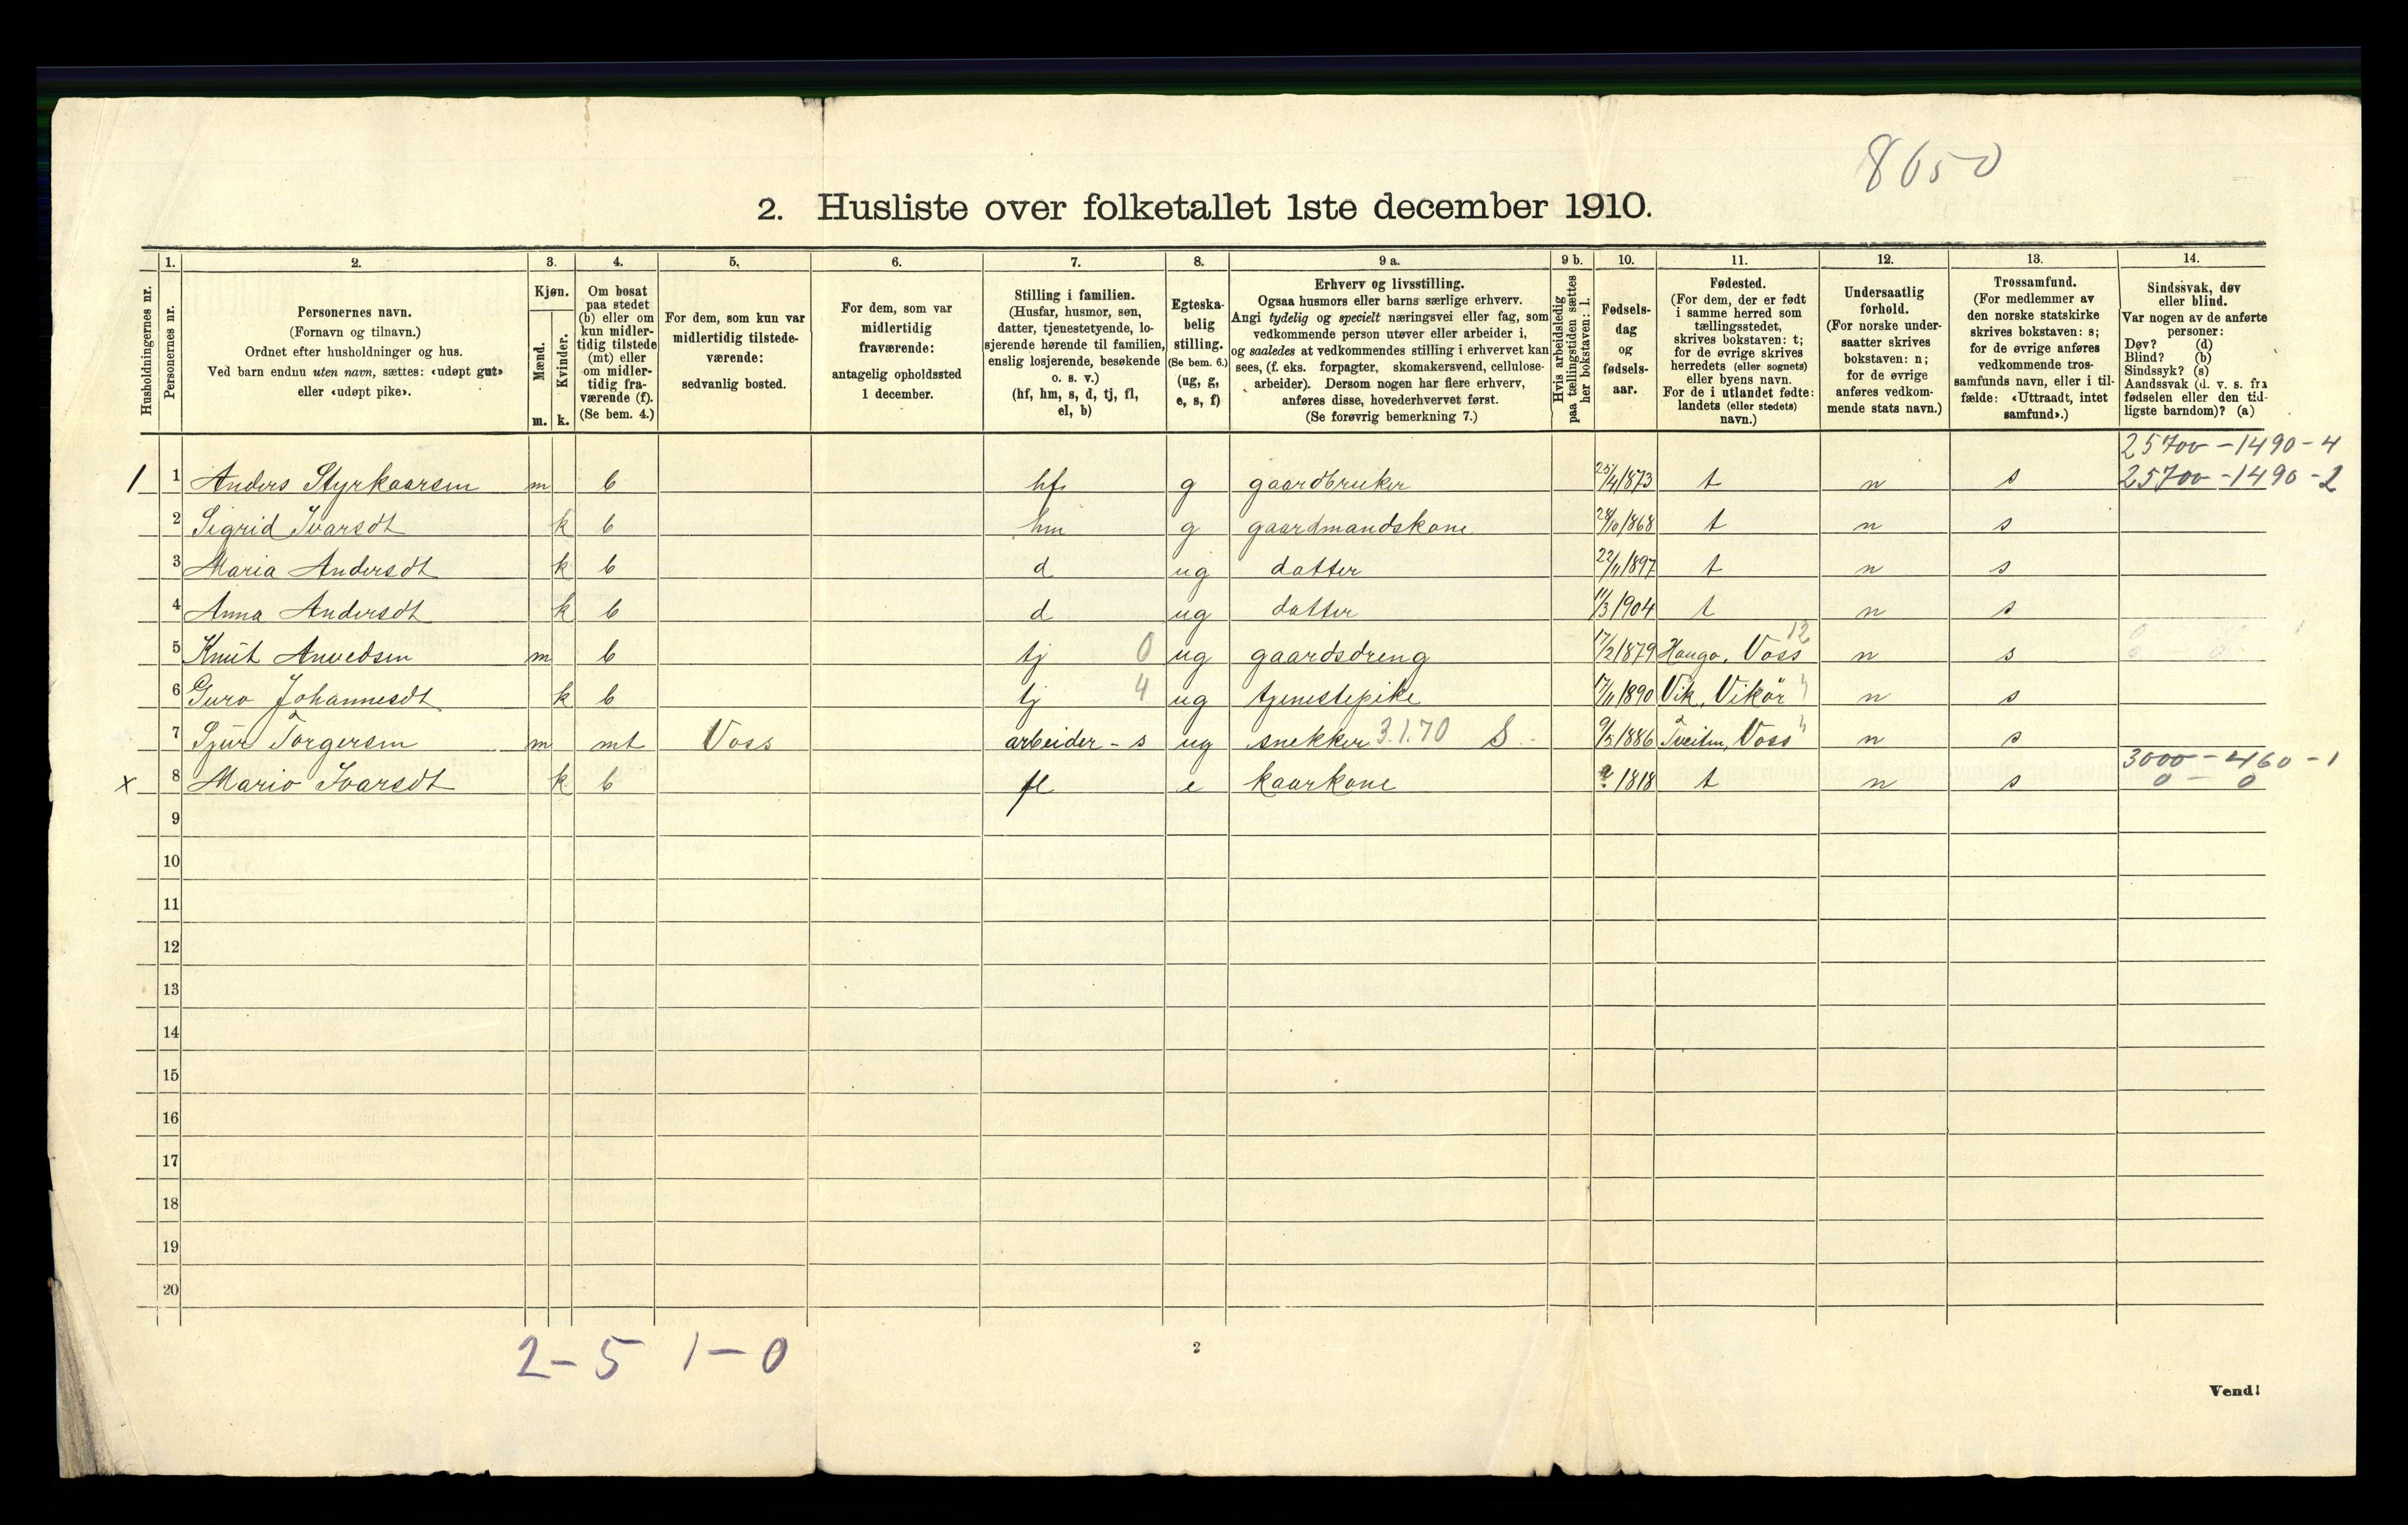 8650
2. Husliste over folketallet 1ste december 1910.
Husholdningernes nr.
1. Personernes nr.
2. Personernes navn.
(Fornavn og tilnavn.)
Ordnet efter husholdninger og hus.
Ved barn endnu uten navn, sættes: «udøpt gut»
eller «udøpt pike».
3. Kjøn.
Mænd. m.
Kvinder. k.
4. Om bosat
paa stedet
(b) eller om
kun midler-
tidig tilstede
(mt) eller
om midler-
tidig fra-
værende (f).
(Se bem. 4.)
5. For dem, som kun var
midlertidig tilstede-
værende:
sedvanlig bosted.
6. For dem, som var
midlertidig
fraværende:
antagelig opholdssted
1 december.
7. Stilling i familien.
(Husfar, husmor, søn,
datter, tjenestetyende, lo-
sjerende hørende til familien,
enslig losjerende, besøkende
o. s. v.)
(hf, hm, s, d, tj, fl,
el, b)
8. Egteska-
belig
stilling.
(Se bem. 6.)
(ug, g,
e, s, f)
9 a. Erhverv og livsstilling.
Ogsaa husmors eller barns særlige erhverv.
Angi tydelig og specielt næringsvei eller fag, som
vedkommende person utøver eller arbeider i,
og saaledes at vedkommendes stilling i erhvervet kan
sees, (f. eks. forpagter, skomakersvend, cellulose-
arbeider). Dersom nogen har flere erhverv,
anføres disse, hovederhvervet først.
(Se forøvrig bemerkning 7.)
9 b. Hvis arbeidsledig
paa tællingstiden sættes
her bokstaven: l.
10. Fødsels-
dag
og
fødsels-
aar.
11. Fødested.
(For dem, der er født
i samme herred som
tællingsstedet,
skrives bokstaven: t;
for de øvrige skrives
herredets (eller sognets)
eller byens navn.
For de i utlandet fødte:
landets (eller stedets)
navn.)
12. Undersaatlig
forhold.
(For norske under-
saatter skrives
bokstaven: n;
for de øvrige
anføres vedkom-
mende stats navn.)
13. Trossamfund.
(For medlemmer av
den norske statskirke
skrives bokstaven: s;
for de øvrige anføres
vedkommende tros-
samfunds navn, eller i til-
fælde: «Uttraadt, intet
samfund».)
14. Sindssvak, døv
eller blind.
Var nogen av de anførte
personer:
Døv? (d)
Blind? (b)
Sindssyk? (s)
Aandssvak (d. v. s. fra
fødselen eller den tid-
ligste barndom)? (a)
25700-1490-4
1 1 Anders Styrkaarsen m b hf g gaardbruker 25/4 1873 t n s 25700-1490-2
2 Sigrid Ivarsdt k b hm g gaardmandskone 1868 t n s
3 Maria Andersdt k b d ug datter 22/11 1897 t n s
4 Anna Andersdt k b d ug datter 11/3 1904 t n s
5 Knut Anvedsen m b tj 0 ug gaardsdreng 17/2 1879 Haugo, Voss 12 n s
6 Guro Johannesdt k b tj 4 ug tjenestepike 17/11 1890 Vik, Vikör n s
7 Sjur Torgersen m mt Voss arbeider - s ug snekker 3.1.70 S 9/5 1886 Tveiten, Voss n s
3000-460-1
x 8 Mario Ivarsdt k b fl e kaarkone 1818 t n s 0 - 0
9
10
11
12
13
14
15
16
17
18
19
20
2-5 1-0
2
Vend!